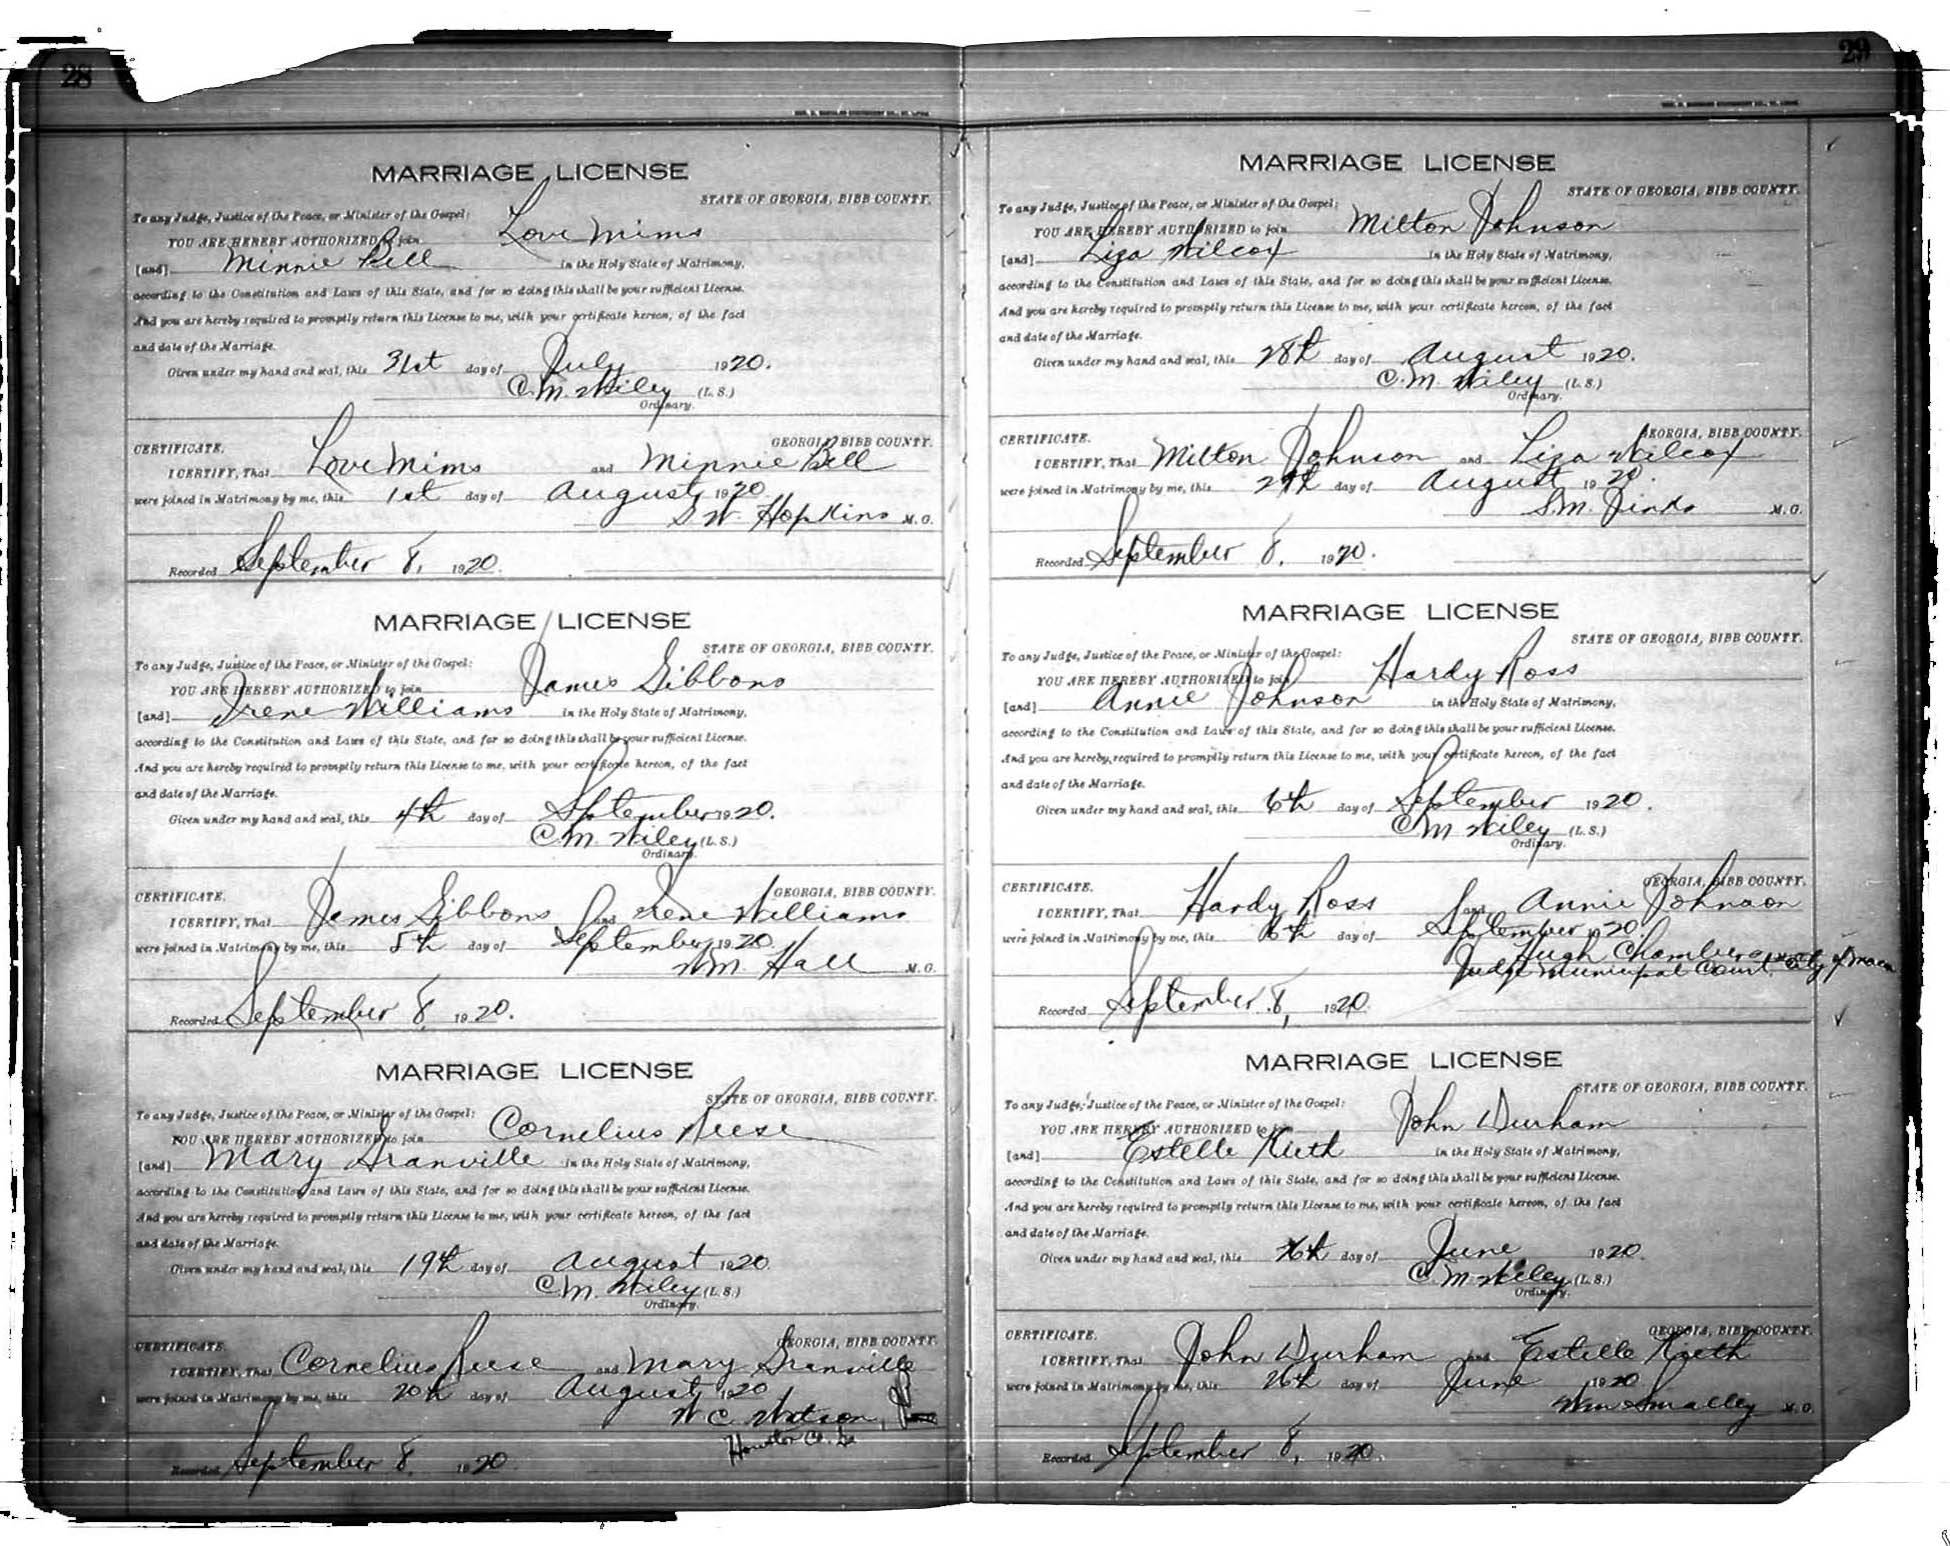 28
MARRIAGE LICENSE
STATE OF GEORGIA, BIBB COUNTY.
To any Judge, Justice of the Peace, or Minister of the Gospel:
YOU ARE HEREBY AUTHORIZED to join Love Mims
[and] Minnie Bell in the Holy State of Matrimony,
according to the Constitution and Laws of this State, and for so doing this shall be your sufficient License.
And you are hereby required to promptly return this License to me, with your certificate hereon, of the fact
and date of the Marriage.
Given under my hand and seal, this 31st day of July 1920.
C. M. Wiley (L.S.)
Ordinary.
CERTIFICATE. GEORGIA, BIBB COUNTY.
I CERTIFY, That Love Mims and Minnie Bell
were joined in Matrimony by me, this 1st day of August 1920
S W. Hopkins M. G.
Recorded September 8, 1920.
MARRIAGE LICENSE
STATE OF GEORGIA, BIBB COUNTY.
To any Judge, Justice of the Peace, or Minister of the Gospel:
YOU ARE HEREBY AUTHORIZED to join James Gibbons
[and] Irene Williams in the Holy State of Matrimony,
according to the Constitution and Laws of this State, and for so doing this shall be your sufficient License.
And you are hereby required to promptly return this License to me, with your certificate hereon, of the fact
and date of the Marriage.
Given under my hand and seal, this 4th day of September 1920.
C. M. Wiley (L.S.)
Ordinary.
CERTIFICATE. GEORGIA, BIBB COUNTY.
I CERTIFY, That James Gibbons and Irene Williams
were joined in Matrimony by me, this 5th day of September 1920.
Wm. Hall M. G.
Recorded September 8, 1920.
MARRIAGE LICENSE
STATE OF GEORGIA, BIBB COUNTY.
To any Judge, Justice of the Peace, or Minister of the Gospel:
YOU ARE HEREBY AUTHORIZED to join Cornelius Reese
[and] Mary Granville in the Holy State of Matrimony,
according to the Constitution and Laws of this State, and for so doing this shall be your sufficient License.
And you are hereby required to promptly return this License to me, with your certificate hereon, of the fact
and date of the Marriage.
Given under my hand and seal, this 19th day of August 1920.
C. M. Wiley (L.S.)
Ordinary.
CERTIFICATE. GEORGIA, BIBB COUNTY.
I CERTIFY, That Cornelius Reese and Mary Granville
were joined in Matrimony by me, this 20th day of August 1920
W C Watson,
Houston Co. Ga
Recorded September 8, 1920
29
MARRIAGE LICENSE
STATE OF GEORGIA, BIBB COUNTY.
To any Judge, Justice of the Peace, or Minister of the Gospel:
YOU ARE HEREBY AUTHORIZED to join Milton Johnson
[and] Liza Wilcox in the Holy State of Matrimony,
according to the Constitution and Laws of this State, and for so doing this shall be your sufficient License.
And you are hereby required to promptly return this License to me, with your certificate hereon, of the fact
and date of the Marriage.
Given under my hand and seal, this 28th day of August 1920.
C. M. Wiley (L.S.)
Ordinary.
CERTIFICATE. GEORGIA, BIBB COUNTY.
I CERTIFY, That Milton Johnson and Liza Wilcox
were joined in Matrimony by me, this day of August 1920.
S. M. M. G.
Recorded September 8, 1920.
MARRIAGE LICENSE
STATE OF GEORGIA, BIBB COUNTY.
To any Judge, Justice of the Peace, or Minister of the Gospel:
YOU ARE HEREBY AUTHORIZED to join Hardy Ross
[and] Annie Johnson in the Holy State of Matrimony,
according to the Constitution and Laws of this State, and for so doing this shall be your sufficient License.
And you are hereby required to promptly return this License to me, with your certificate hereon, of the fact
and date of the Marriage.
Given under my hand and seal, this 6th day of September 1920.
C M Wiley (L.S.)
Ordinary.
CERTIFICATE. GEORGIA, BIBB COUNTY.
I CERTIFY, That Hardy Ross and Annie Johnson
were joined in Matrimony by me, this 6th day of September 1920.
Hugh Chambers
Judge Municipal Court, City of Macon
Recorded September 8, 1920.
MARRIAGE LICENSE
STATE OF GEORGIA, BIBB COUNTY.
To any Judge, Justice of the Peace, or Minister of the Gospel:
YOU ARE HEREBY AUTHORIZED to join John Durham
[and] Estelle Kieth in the Holy State of Matrimony,
according to the Constitution and Laws of this State, and for so doing this shall be your sufficient License.
And you are hereby required to promptly return this License to me, with your certificate hereon, of the fact
and date of the Marriage.
Given under my hand and seal, this 26th day of June 1920.
C. M. Wiley (L.S.)
Ordinary.
CERTIFICATE. GEORGIA, BIBB COUNTY.
I CERTIFY, That John Durham and Estelle Kieth
were joined in Matrimony by me, this 26th day of June 1920
Wm Smalley M. G.
Recorded September 8, 1920.